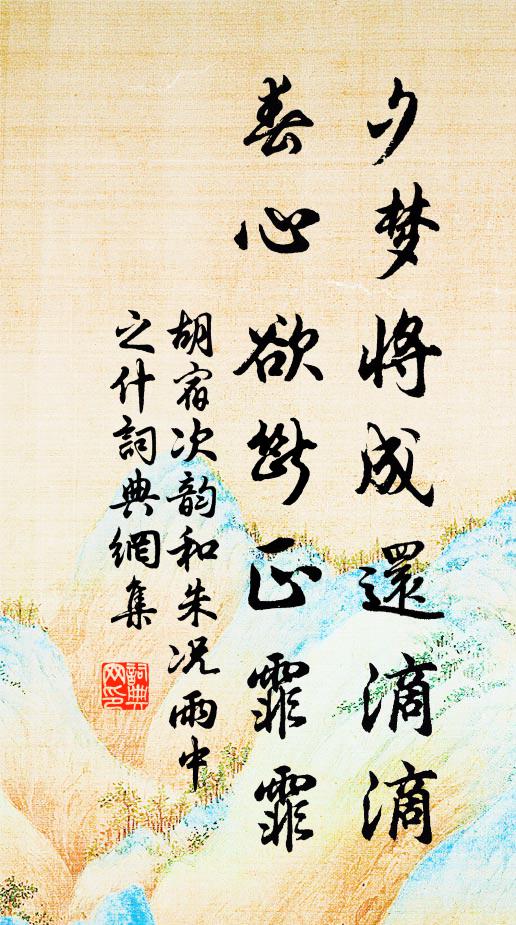 夕梦將成還滴滴
春心欲斷正霏霏
胡宿次韵和朱况雨中
之什詞典網集
詞典网印